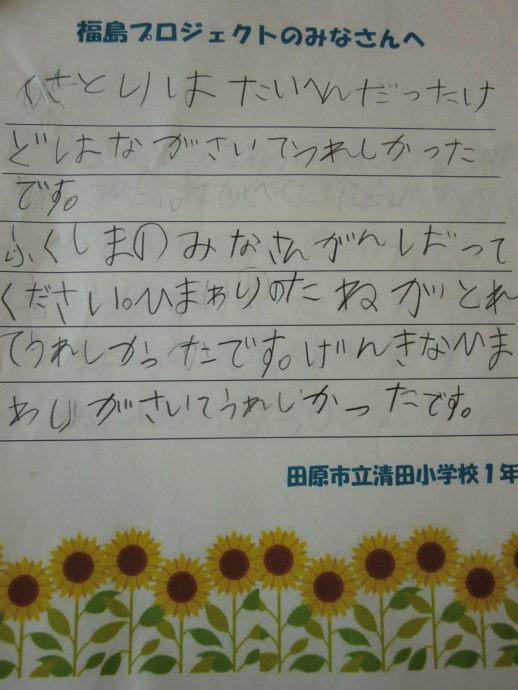 福島プロジェクトのみなさんへ
くさとりはたいへんだったけ
どはながさいてうれしかった
です。
ふくしまのみなさんがんばって
ください。ひまわりのたねがとれ
てうれしかったです。げんきなひま
わりがさいてうれしかったです。
田原市立清田小学校1年